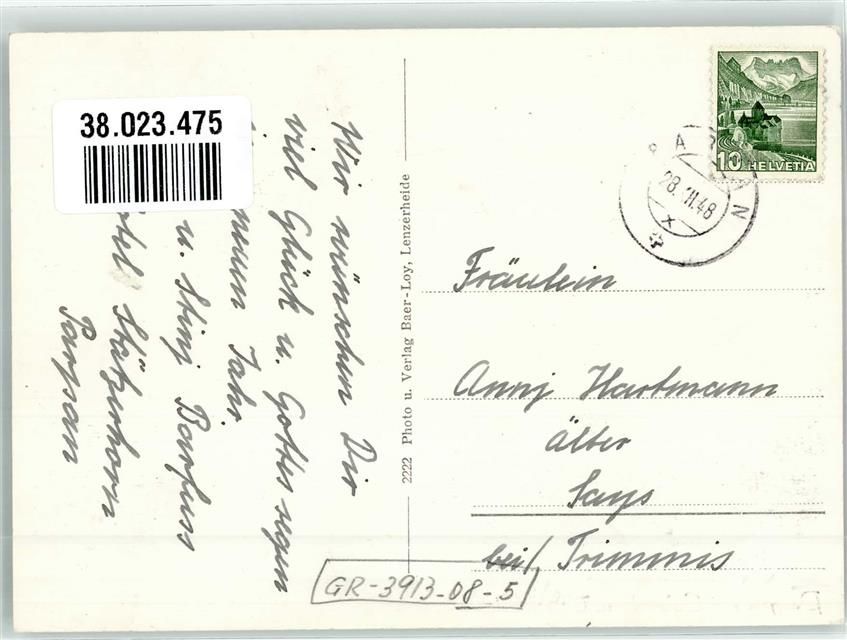 38.023.475
Wir wünschen Dir
viel Glück u. Gottes segen
neuen Jahr
u. Stinj Barfuss
Stätzerhorn
Parpan
2222 Photo u. Verlag Baer-Loy, Lenzerheide
10 HELVETIA
28. 48
x
Fräulein
Annj Hartmann
älter
Says
bei/ Trimmis
GR-3913-08-5